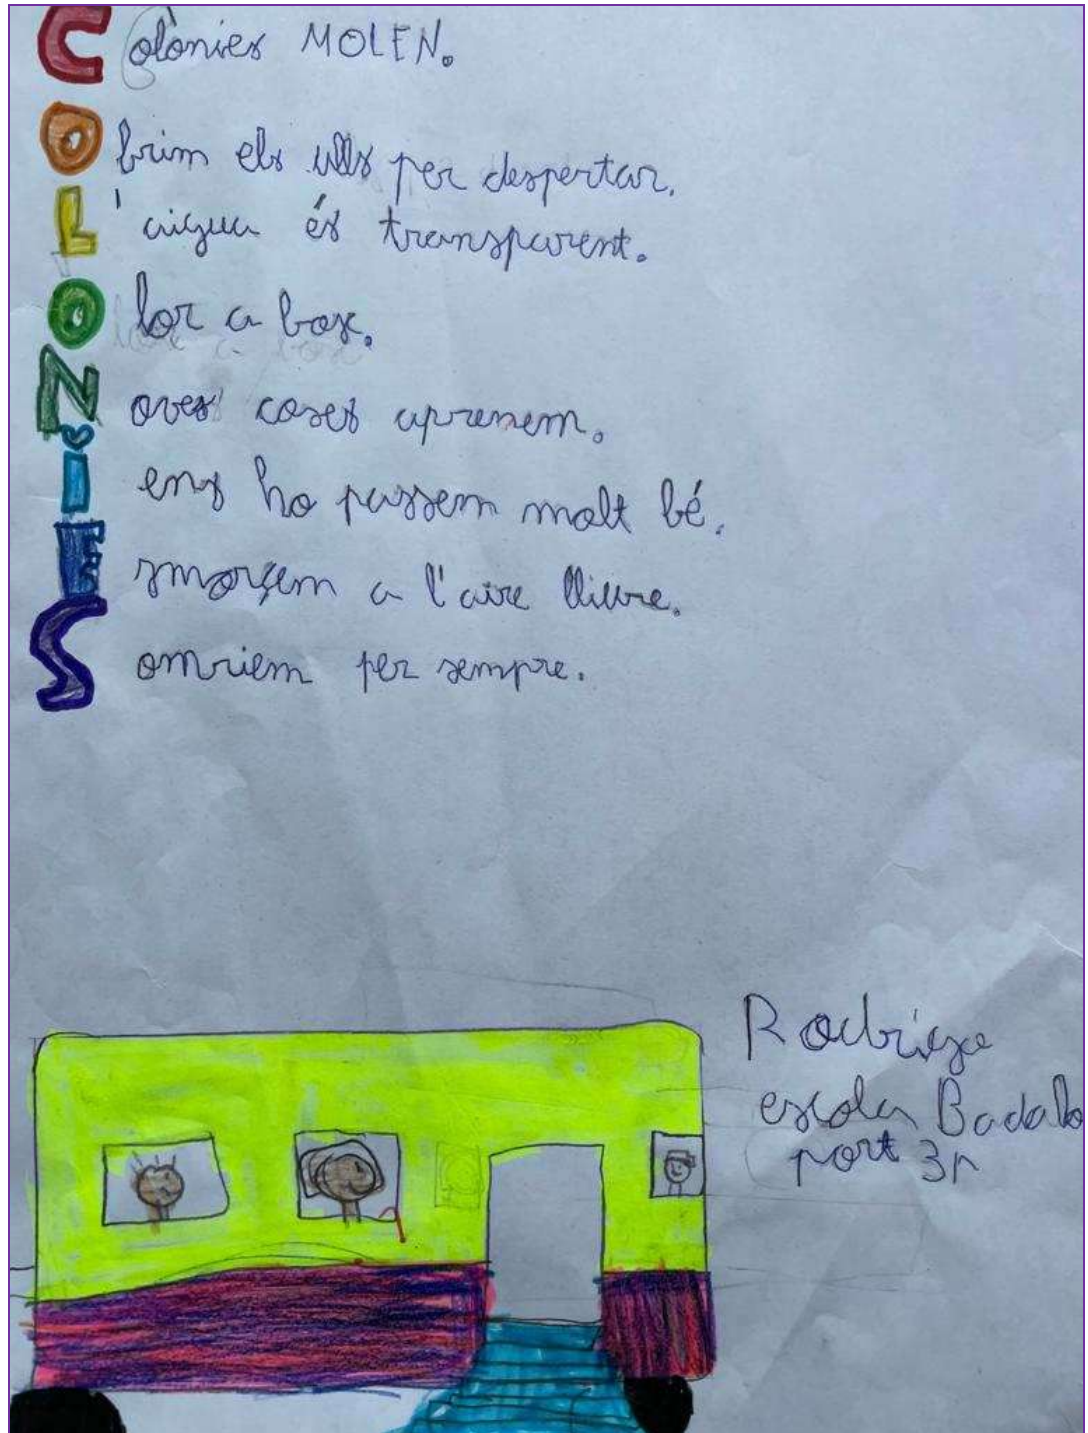 Colònies MOLEN.
Obrim els ulls per despertar.
L'aigua és transparent.
Olor a bosc.
Noves coses aprenem.
I ens ho passem molt bé.
Esmorçem a l'aire lliure.
Somriem per sempre.
Rodrigo
escola Badalo
port 3r